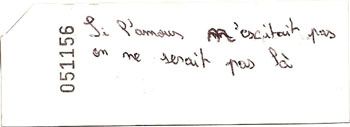 051156
Si l'amour m'exitait pas
on ne serait pas là